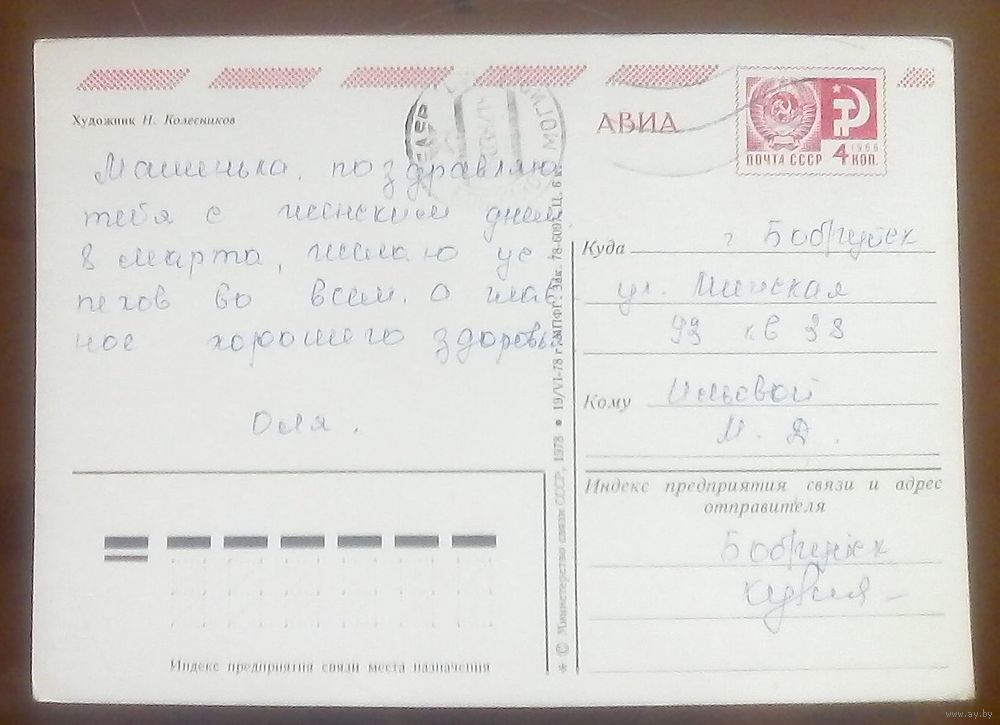 Художник Н. Колесников
АВИА
ПОЧТА СССР 4 КОП.
1966
Машинька, поздравляю
тебя с женским днем
8 марта, желаю ус
пехов во всем. а глав
ное хорошего здоровья
Оля.
Куда г Бобруйск
ул. Минская
93 кв 38
Кому
М. Д.
Индекс предприятия связи и адрес
отправителя
Бобруйск
Индекс предприятия связи места назначения
* © Министерство связи СССР, 1978 • 19/VI-78 г. МПФГ. Зак. 78-6097. Ц. 6 к.
www.ay.by